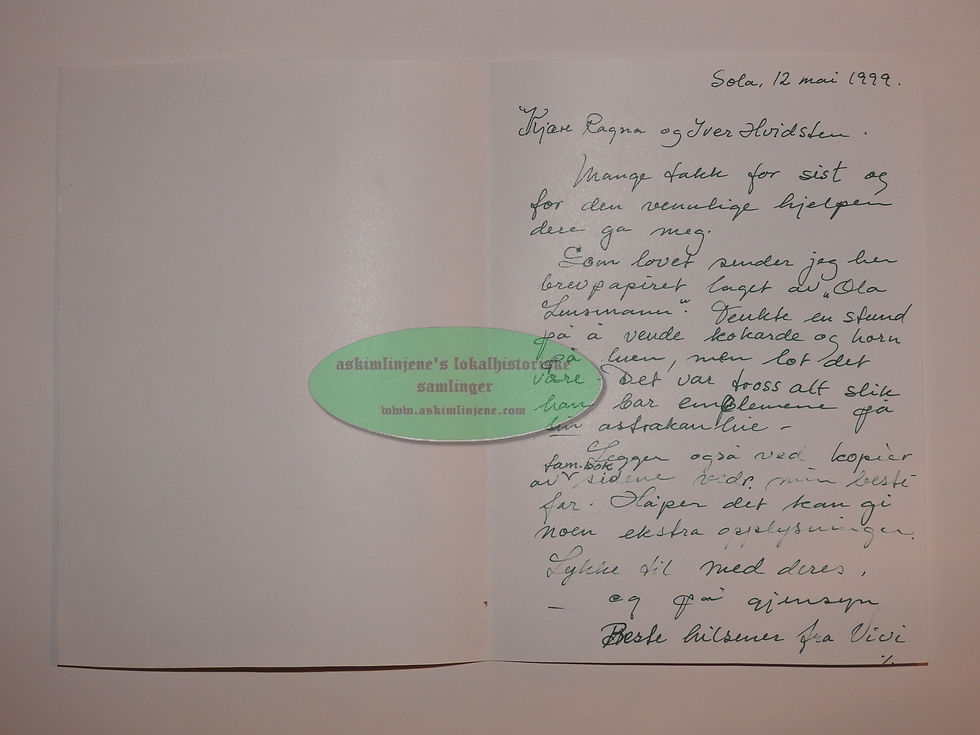 Sola, 12 mai 1999.
Kjære Ragna og Iver Hvidsten.
Mange takk for sist og
for den vennlige hjelpen
dere ga meg.
Som lovet sender jeg her
brevpapiret laget av „Ola
Linsmann". Tenkte en stund
på å vende kokarde og horn
på luen, men lot det
være. Det var tross alt slik
han bar emblemene på
sin astrakanlue -
Legger også ved kopier
av fam.bok sidene vedr. min beste
far. Håper det kan gi
noen ekstra opplysninger.
Lykke til med deres,
- og på gjensyn
Beste hilsener fra Vivi
%
askimlinjene's lokalhistoriske
samlinger
www.askimlinjene.com